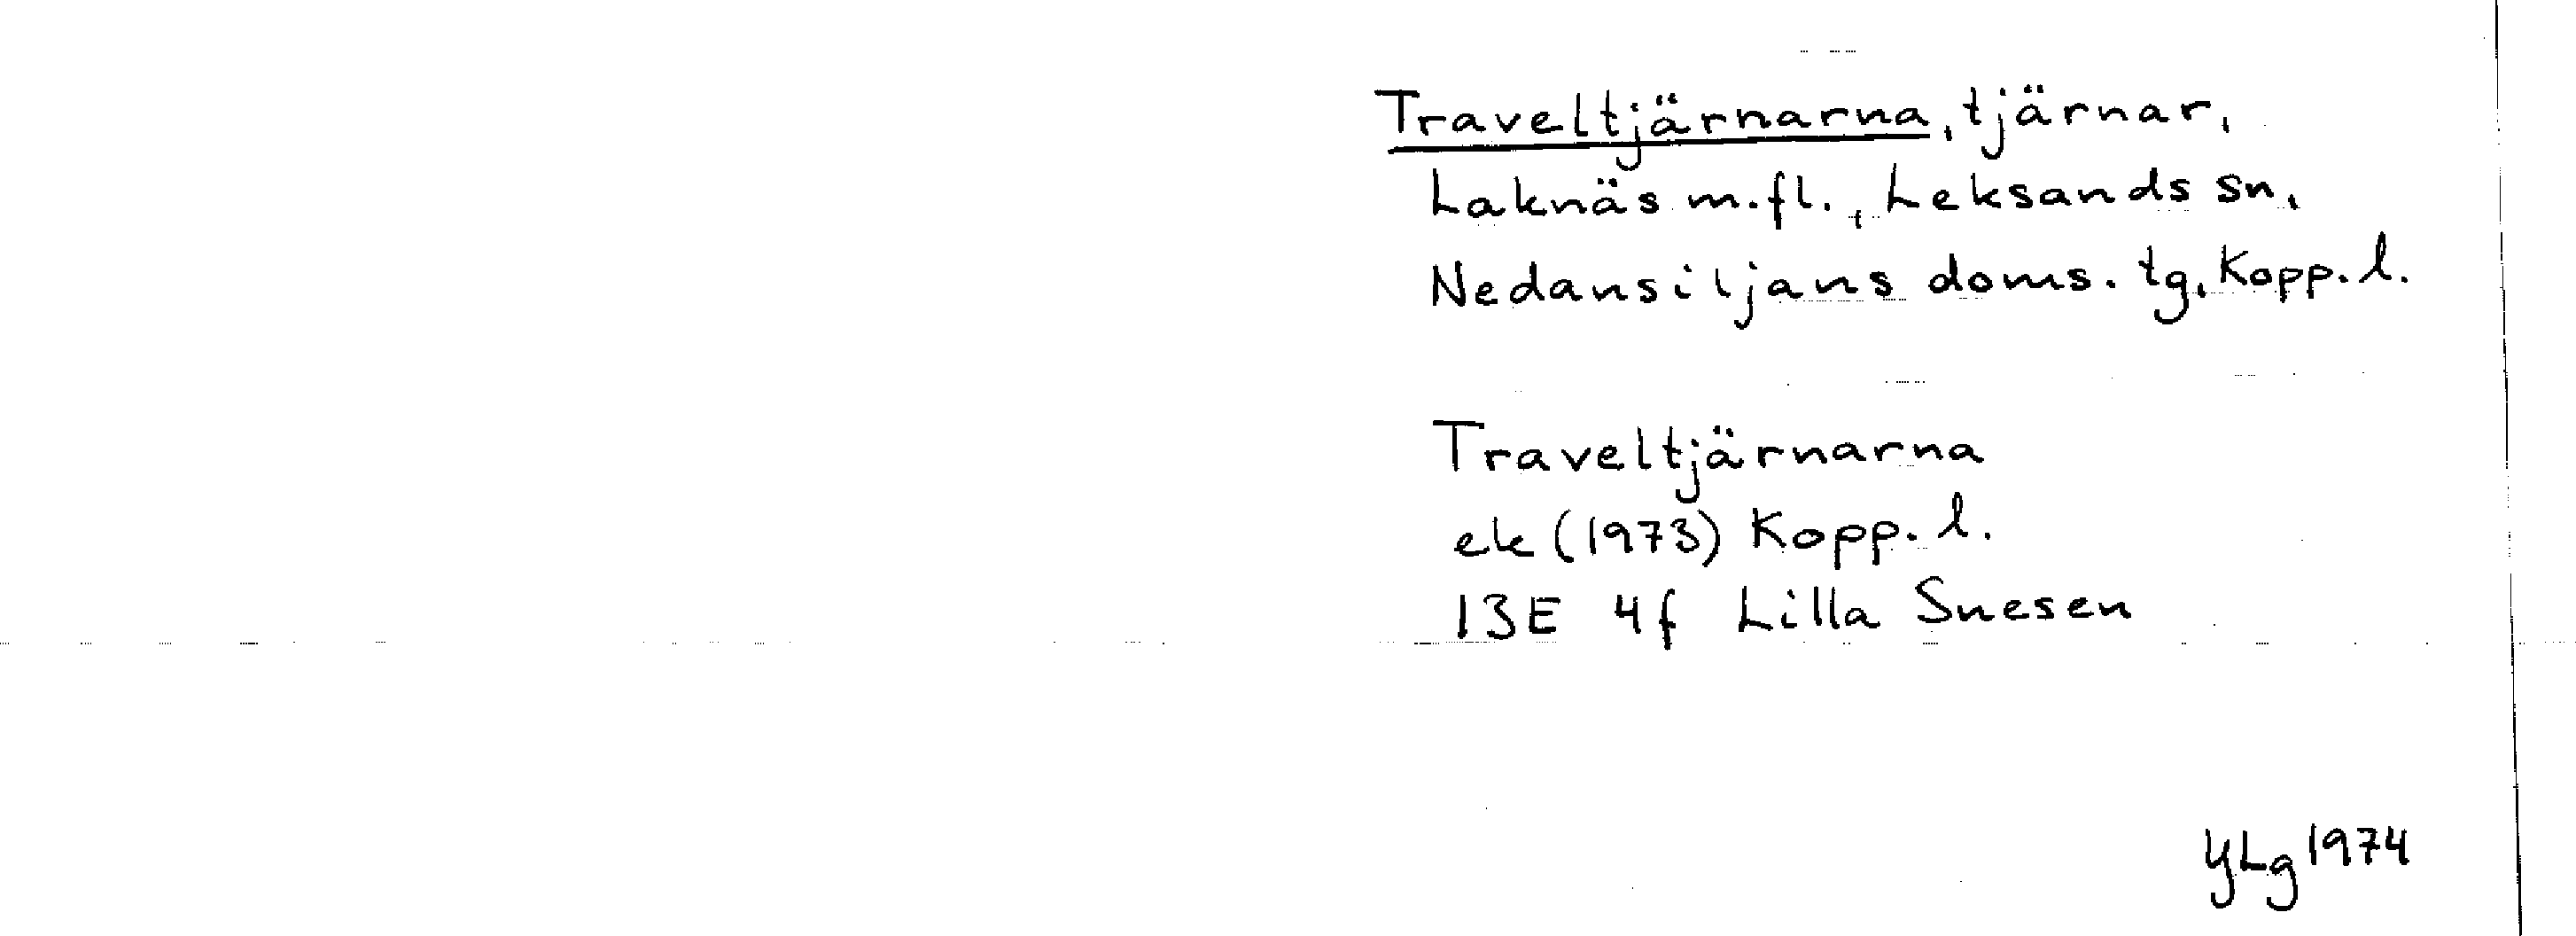 Traveltjärnarna, tjärnar,
Laknäs m.fl., Leksands sn,
Nedansiljans doms. tg, Kopp. l.
Traveltjärnarna
ek (1973) Kopp. l.
13E 4f Lilla Snesen
YLg 1974